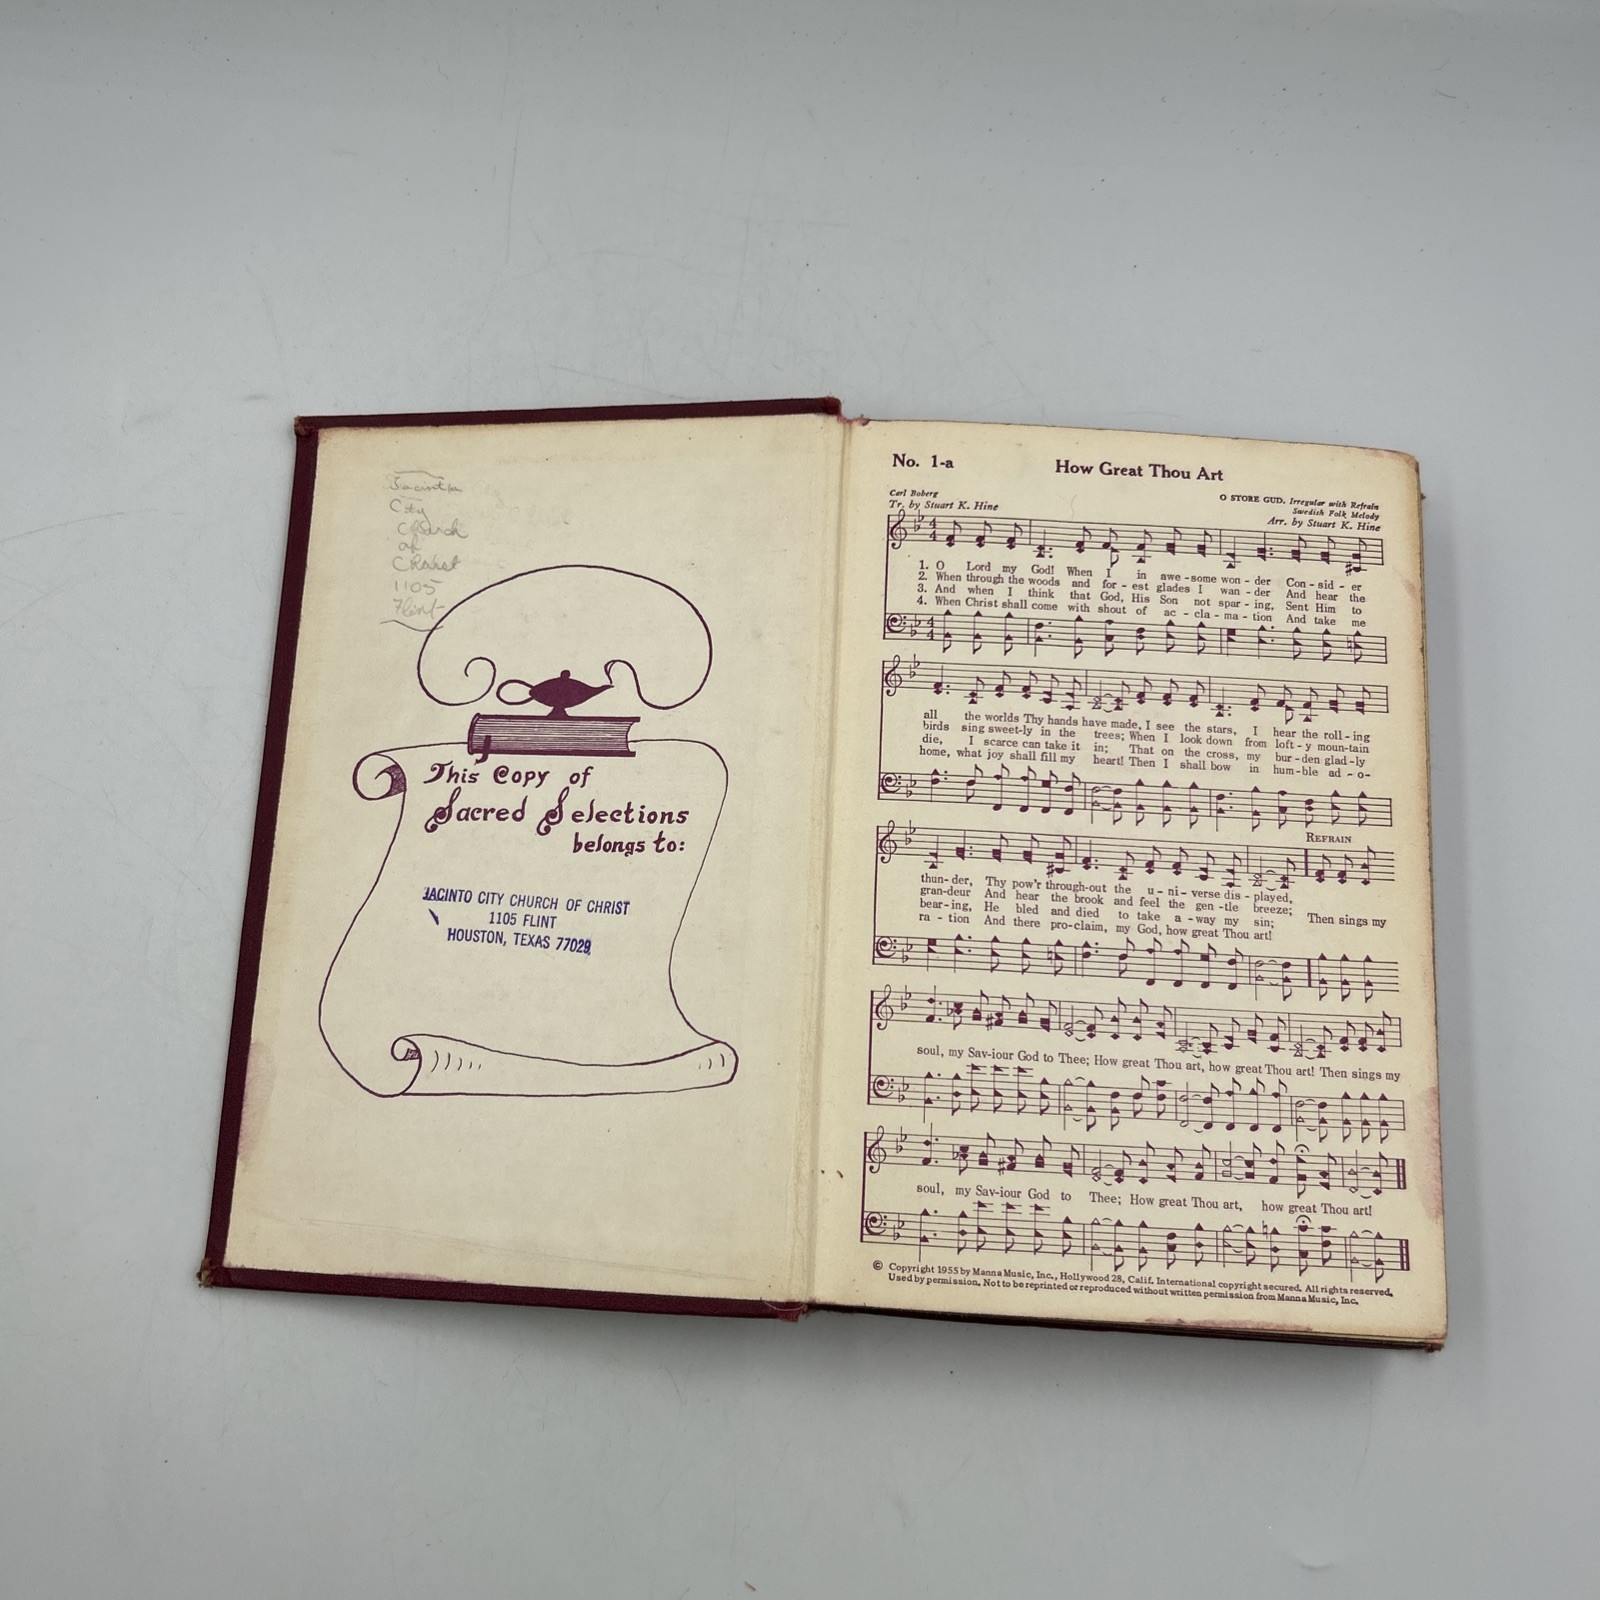 Jacinto
City
Church
of
Christ
1105
Flint
This Copy of
Sacred Selections
belongs to:
JACINTO CITY CHURCH OF CHRIST
1105 FLINT
HOUSTON, TEXAS 77029
No. 1-a
How Great Thou Art
Carl Boberg
Tr. by Stuart K. Hine
O STORE GUD. Irregular with Refrain
Swedish Folk Melody
Arr. by Stuart K. Hine
1. O Lord my God! When I in awe-some won-der Con-sid-er
2. When through the woods and for-est glades I wan-der And hear the
3. And when I think that God, His Son not spar-ing, Sent Him to
4. When Christ shall come with shout of ac-cla-ma-tion And take me
all the worlds Thy hands have made, I see the stars, I hear the roll-ing
birds sing sweet-ly in the trees; When I look down from loft-y moun-tain
die, I scarce can take it in; That on the cross, my bur-den glad-ly
home, what joy shall fill my heart! Then I shall bow in hum-ble ad-o-
REFRAIN
thun-der, Thy pow'r through-out the u-ni-verse dis-played,
gran-deur And hear the brook and feel the gen-tle breeze; Then sings my
bear-ing, He bled and died to take a-way my sin;
ra-tion And there pro-claim, my God, how great Thou art!
soul, my Sav-iour God to Thee; How great Thou art, how great Thou art! Then sings my
soul, my Sav-iour God to Thee; How great Thou art, how great Thou art!
© Copyright 1955 by Manna Music, Inc., Hollywood 28, Calif. International copyright secured. All rights reserved.
Used by permission. Not to be reprinted or reproduced without written permission from Manna Music, Inc.